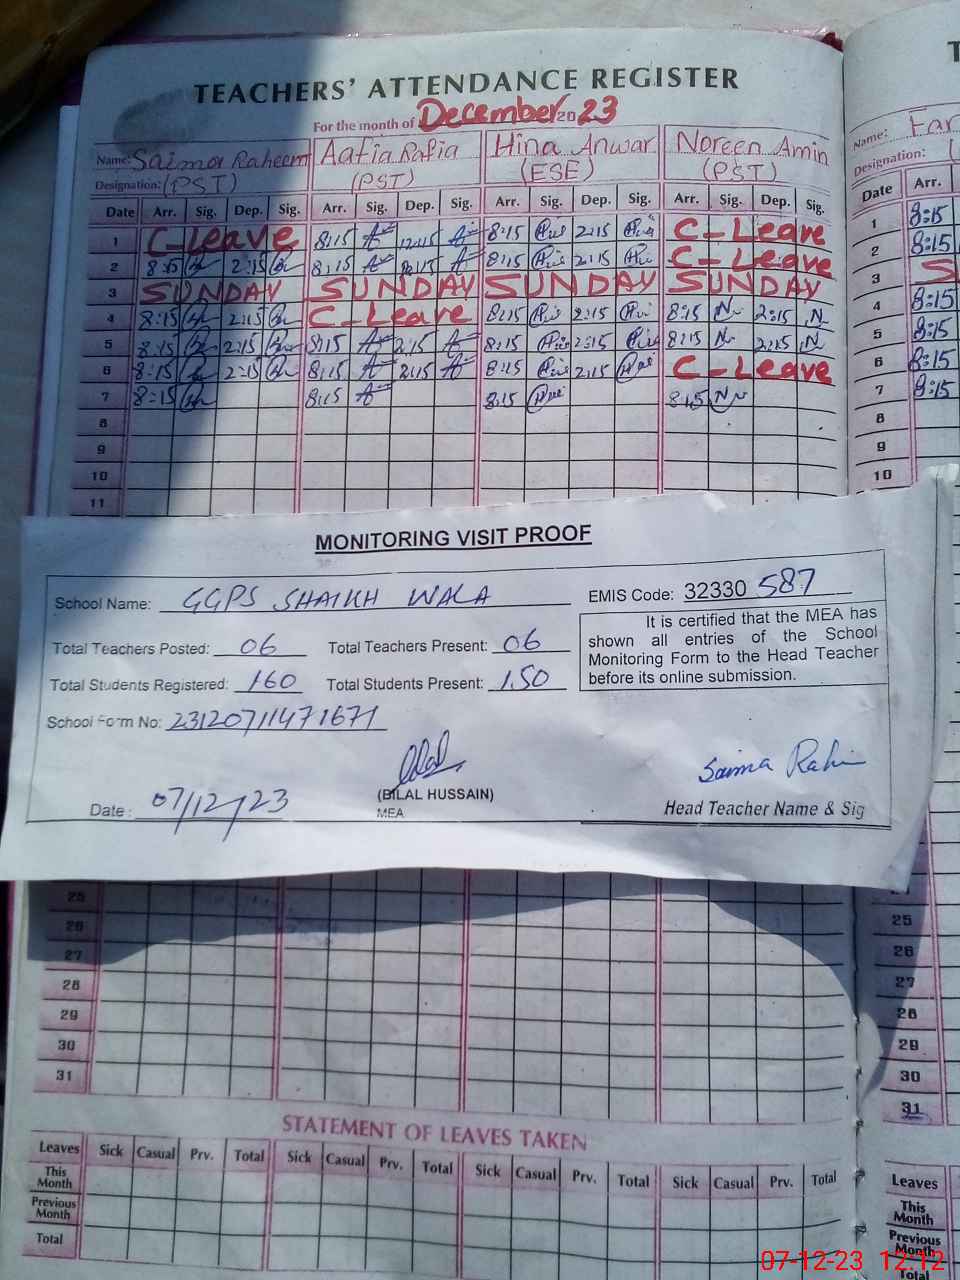 TEACHERS' ATTENDANCE REGISTER
For the month of December 2023
Name: Saima Raheem Aatia Rafia Hina Anwar Noreen Amin
Designation: (PST) (PST) (ESE) (PST)
Date Arr. Sig. Dep. Sig. Arr. Sig. Dep. Sig. Arr. Sig. Dep. Sig. Arr. Sig. Dep. Sig.
1 C-Leave 8:15 12:15 8:15 2:15 C-Leave
2 8:15 2:15 8:15 8:15 2:15 C-Leave
3 SUNDAY SUNDAY SUNDAY SUNDAY
4 8:15 2:15 C-Leave 8:15 2:15 8:15 2:15
5 8:15 2:15 8:15 2:15 8:15 2:15 8:15 2:15
6 8:15 2:15 8:15 2:15 8:15 2:15 C-Leave
7 8:15 8:15 8:15 8:15
8
9
10
11
Name: Far
Designation:
Date Arr.
1 8:15
2 8:15
3 S
4 8:15
5 8:15
6 8:15
7 8:15
8
9
10
MONITORING VISIT PROOF
School Name: GGPS SHAIKH WALA EMIS Code: 32330 587
Total Teachers Posted: 06 Total Teachers Present: 06
Total Students Registered: 160 Total Students Present: 150
It is certified that the MEA has
shown all entries of the School
Monitoring Form to the Head Teacher
before its online submission.
School Form No: 23120711471671
Saima Rahi
Date: 07/12/23 (BILAL HUSSAIN)
MEA
Head Teacher Name & Sig
25
26
27
28
29
30
31
25
26
27
28
29
30
31
STATEMENT OF LEAVES TAKEN
Leaves Sick Casual Prv. Total Sick Casual Prv. Total Sick Casual Prv. Total Sick Casual Prv. Total
This Month
Previous Month
Total
Leaves
This Month
Previous Month
Total
07-12-23 12:12